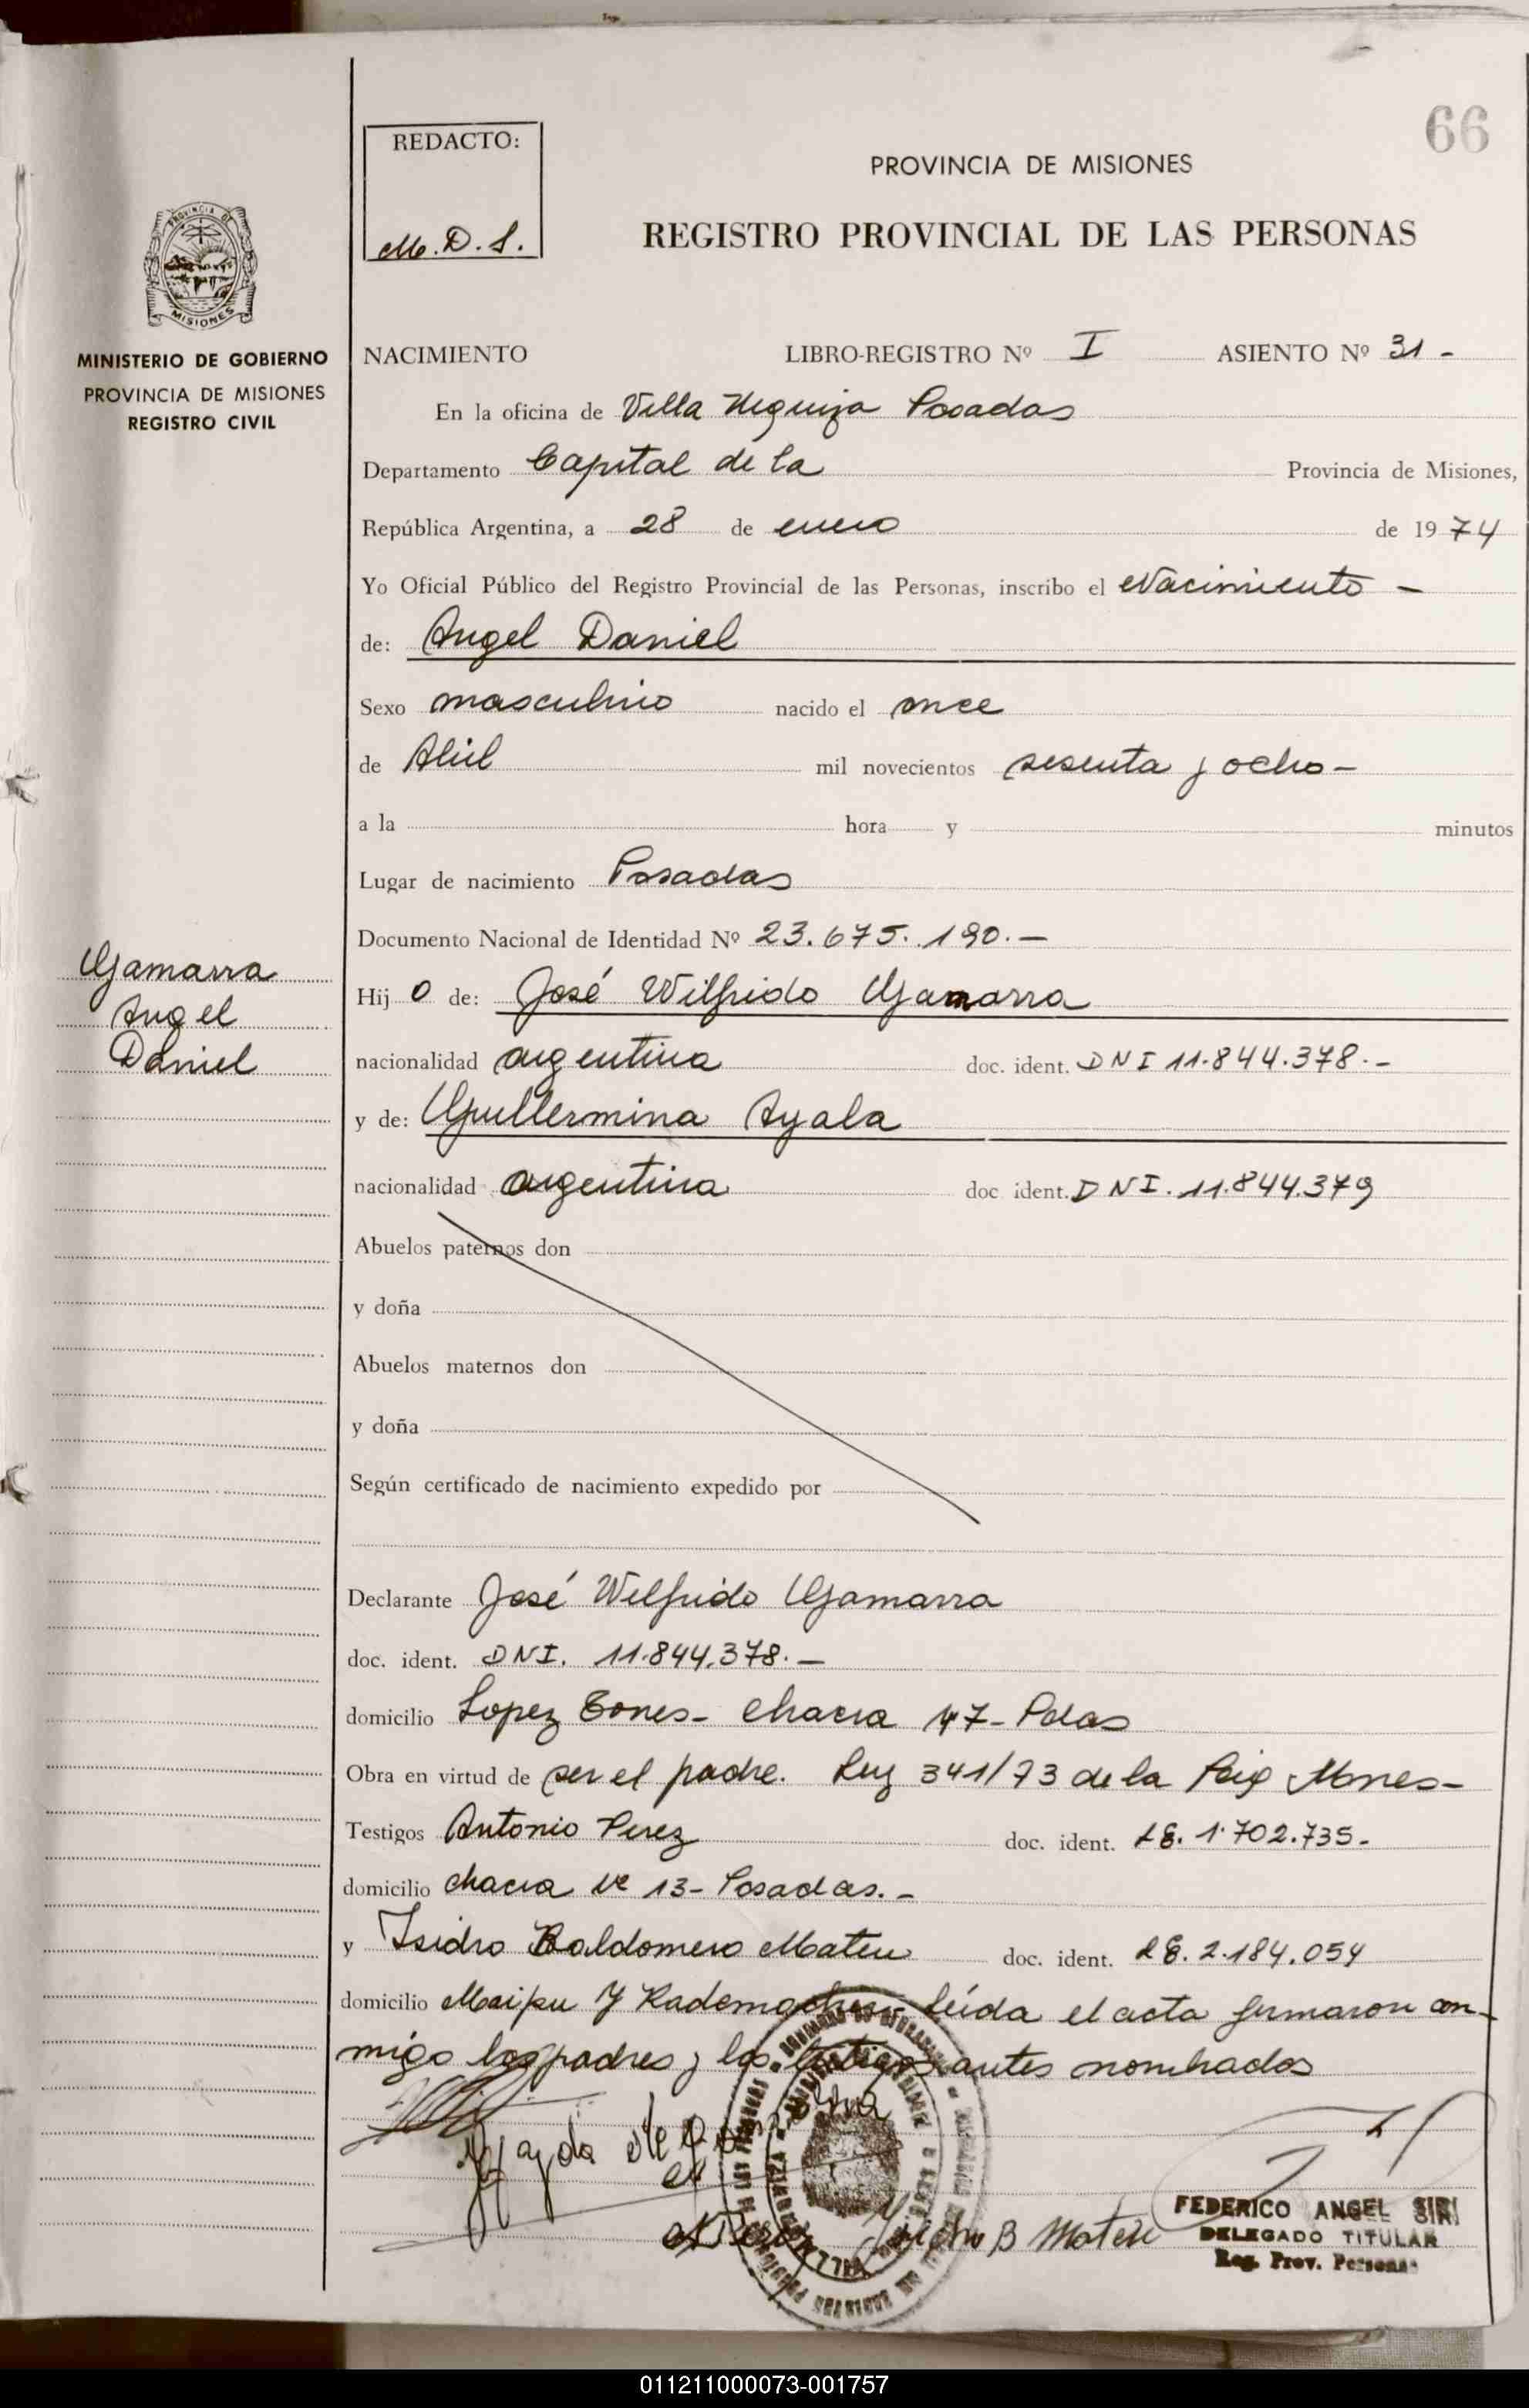 66
REDACTO:
M. D. S.
PROVINCIA DE MISIONES
REGISTRO PROVINCIAL DE LAS PERSONAS
PROVINCIA DE
MISIONES
MINISTERIO DE GOBIERNO
PROVINCIA DE MISIONES
REGISTRO CIVIL
NACIMIENTO LIBRO-REGISTRO Nº I ASIENTO Nº 31 -
En la oficina de Villa Urquiza Posadas
Departamento Capital de la Provincia de Misiones,
República Argentina, a 28 de enero de 1974
Yo Oficial Público del Registro Provincial de las Personas, inscribo el Nacimiento -
de: Angel Daniel
Sexo masculino nacido el once
de Abril mil novecientos sesenta y ocho -
a la hora y minutos
Lugar de nacimiento Posadas
Documento Nacional de Identidad Nº 23.675.190.-
Gamarra
Angel
Daniel
Hij o de: José Wilfrido Gamarra
nacionalidad argentina doc. ident. DNI 11.844.378.-
y de: Guillermina Ayala
nacionalidad argentina doc ident. DNI. 11.844.379
Abuelos paternos don
y doña
Abuelos maternos don
y doña
Según certificado de nacimiento expedido por
Declarante José Wilfrido Gamarra
doc. ident. DNI. 11.844.378.-
domicilio Lopez Torres - Chacra 47 - Pdas
Obra en virtud de ser el padre. Ley 341/73 de la Mnes-
Testigos Antonio Perez doc. ident. LE. 1.702.735.-
domicilio chacra Nº 13 - Posadas. -
y Isidro Baldomero Mateu doc. ident. LE. 2.184.054
domicilio Maipu y Rademacher. Leída el acta firmaron con-
migo los padres y los testigos antes nombrados
B Mateu
FEDERICO ANGEL SIRI
DELEGADO TITULAR
Reg. Prov. Personas
011211000073-001757